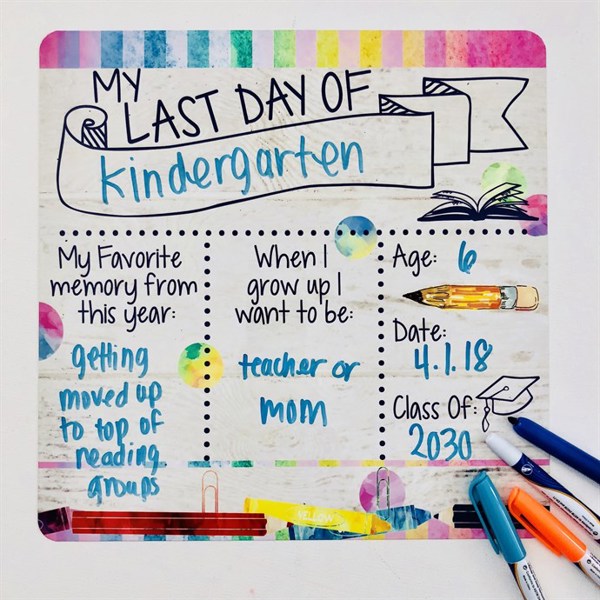 MY
LAST DAY OF
kindergarten
My Favorite
memory from
this year:
getting
moved up
to top of
reading
groups
When I
grow up I
want to be:
teacher or
mom
Age: 6
Date:
4.1.18
Class Of:
2030
YELLOW